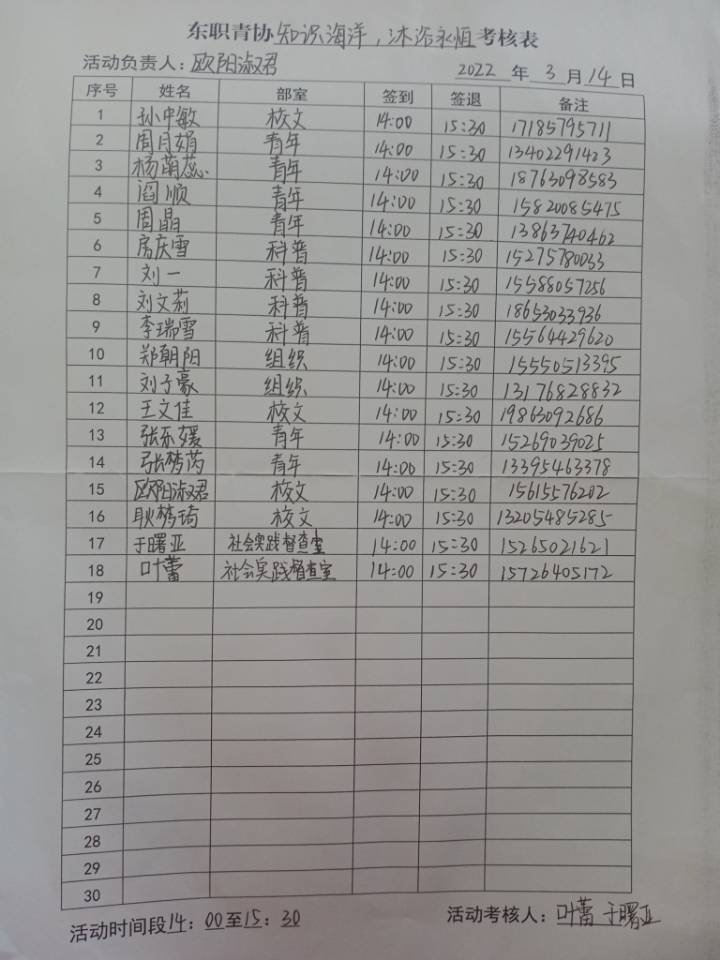 东职青协知识海洋，沐浴永恒考核表
活动负责人：欧阳淑君 2022 年 3 月 14 日
序号 姓名 部室 签到 签退 备注
1 孙中敏 校文 14:00 15:30 17185795711
2 周月娟 青年 14:00 15:30 13402291423
3 杨萌蕊 青年 14:00 15:30 18763098583
4 阎顺 青年 14:00 15:30 15820085475
5 周晶 青年 14:00 15:30 13863740462
6 房庆雪 科普 14:00 15:30 15275780033
7 刘一 科普 14:00 15:30 15588057256
8 刘文莉 科普 14:00 15:30 18653033936
9 李瑞雪 科普 14:00 15:30 15564429620
10 郑朝阳 组织 14:00 15:30 15550513395
11 刘子豪 组织 14:00 15:30 13176828832
12 王文佳 校文 14:00 15:30 19863092686
13 张东媛 青年 14:00 15:30 15269039025
14 张梦芮 青年 14:00 15:30 13395463378
15 欧阳淑君 校文 14:00 15:30 15615576202
16 耿梦琦 校文 14:00 15:30 13205485285
17 于曙亚 社会实践督查室 14:00 15:30 15265021621
18 叶蕾 社会实践督查室 14:00 15:30 15726405172
19
20
21
22
23
24
25
26
27
28
29
30
活动时间段14：00至15：30 活动考核人：叶蕾 于曙亚